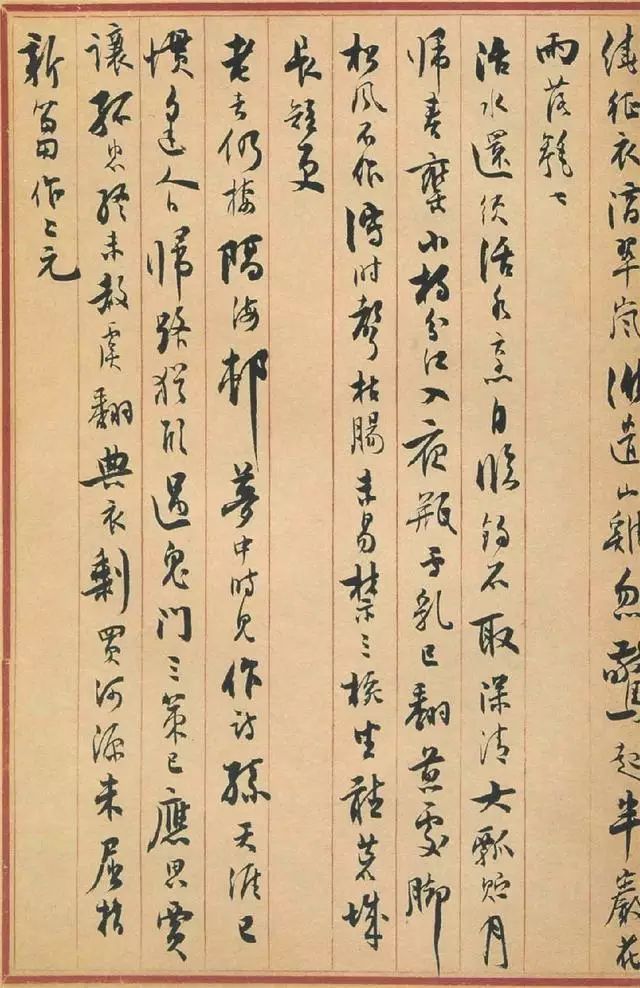 繞征衣滴翠嵐誰遣山雞忽驚起半巖花
雨落毿々
活水還須活火烹自臨釣石取深清大瓢貯月
歸春甕小杓分江入夜瓶雪乳已翻煎處腳
松風作瀉時聲枯腸未易禁三椀坐聽荒城
長短更
老去仍棲隔海邨夢中時見作詩孫天涯已
慣逢人日歸路猶欣過鬼門三策已應思賈
讓孤忠終未赦虞翻典衣剩買河源米屈指
新篘作上元